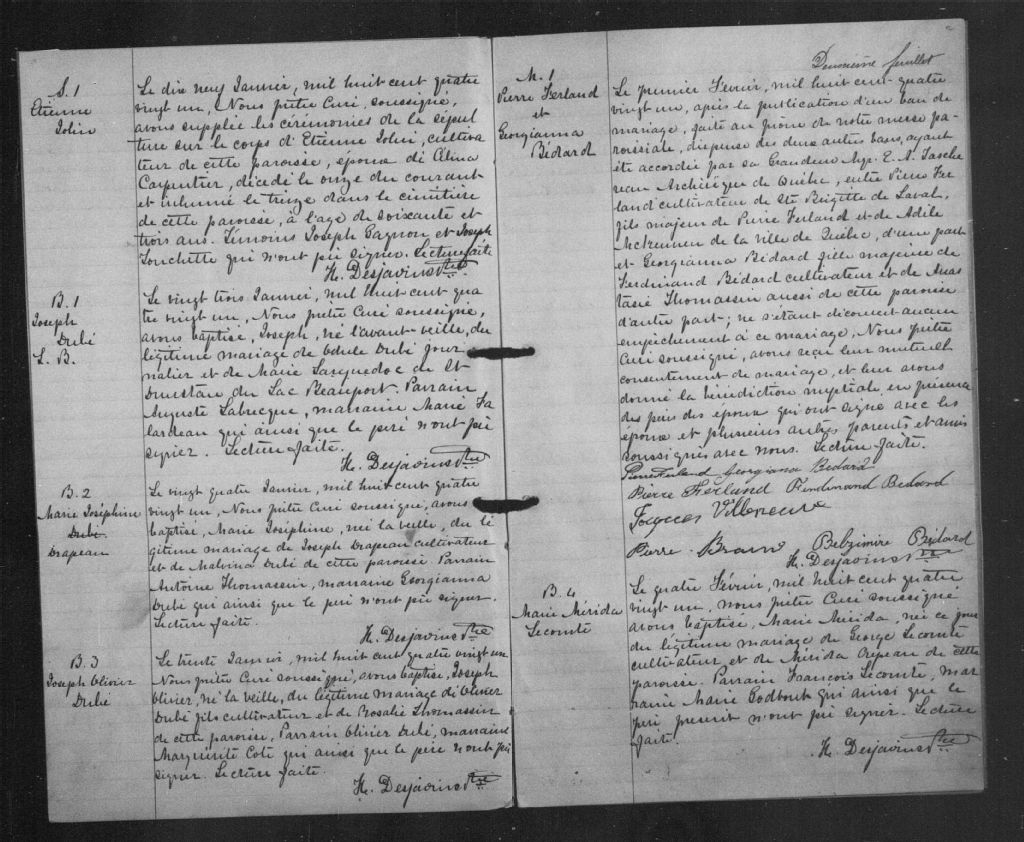 S. 1
Etienne
Jolin
Le dix neuf Janvier, mil huit cent quatre
vingt un, Nous prêtre Curé, soussigné,
avons supplée les cérémonies de la sépul
ture sur le corps d'Etienne Jolin, cultiva
teur de cette paroisse, époux de Elina
Carpentier, décédé le onze du courant
et inhumé le treize dans le cimetière
de cette paroisse, à l'age de soixante et
trois ans. Témoins Joseph Gagnon et Joseph
Touchette qui n'ont pu signer. Lecture faite
H. Desjarins Ptre
B. 1
Joseph
Dubé
L. B.
Le vingt trois Janvier, mil huit cent qua
tre vingt un, Nous prêtre Curé soussigné,
avons baptisé, Joseph, né l'avant-veille, du
légitime mariage de Edule Dubé jour
nalier et de Marie Languedoc de St
Dunstan du Lac Beauport. Parrain
Auguste Labrecque, marraine Marie Fa
lardeau qui ainsi que le père n'ont pu
signer. Lecture faite.
H. Desjarins Ptre
B. 2
Marie Joséphine
Dubé
Drapeau
Le vingt quatre Janvier, mil huit cent quatre
vingt un, Nous prêtre Curé soussigné, avons
baptisé, Marie Joséphine, née la veille, du lé
gitime mariage de Joseph Drapeau cultivateur
et de Malvina Dubé de cette paroisse Parrain
Antoine Thomassin, marraine Georgianna
Dubé qui ainsi que le père n'ont pu signer.
Lecture faite.
H. Desjarins Ptre
B. 3
Joseph Olivier
Dubé
Le trente Janvier, mil huit cent quatre vingt un
Nous prêtre Curé soussigné, avons baptisé, Joseph
Olivier, né la veille, du légitime mariage d'Olivier
Dubé fils cultivateur et de Rosalie Thomassin
de cette paroisse, Parrain Olivier Dubé, marraine
Marguerite Coté qui ainsi que le père n'ont pu
signer. Lecture faite.
H. Desjarins Ptre
Deuxième feuillet
M. 1
Pierre Ferland
et
Georgianna
Bédard
Le premier Février, mil huit cent quatre
vingt un, après la publication d'un ban de
mariage, faite au prône de notre messe pa-
roissiale, dispense des deux autres bans, ayant
été accordée par sa Grandeur Mgr. E. A. Tasche
reau Archévêque de Québec, entre Pierre Fer
land cultivateur de Ste Brigitte de Laval,
fils majeur de Pierre Ferland et de Adile
McKennen de la ville de Québec, d'une part
et Georgianna Bédard fille majeure de
Ferdinand Bédard cultivateur et de Anas
tasie Thomassin aussi de cette paroisse
d'autre part; ne s'étant découvert aucun
empêchement à ce mariage, Nous prêtre
Curé soussigné, avons reçu leur mutuel
consentement de mariage, et leur avons
donné la bénédiction nuptiale en présence
des pères des époux qui ont signé avec les
époux et plusieurs autres parents et amis
soussignés avec nous. Lecture faite.
Pierre Ferland Georgianna Bédard
Pierre Ferland Ferdinand Bedard
Jacques Villeneuve
Pierre Brown Belzimire Bédard
H. Desjarins Ptre
B. 4
Marie Mérida
Lecomte
Le quatre Février, mil huit cent quatre
vingt un, nous prêtre Curé soussigné
avons baptisé, Marie Mérida, née ce jour
du légitime mariage de George Lecomte
cultivateur et de Mérida Crepeau de cette
paroisse. Parrain François Lecomte, mar
raine Marie Godbout qui ainsi que le
père présent n'ont pu signer. Lecture
faite.
H. Desjarins Ptre